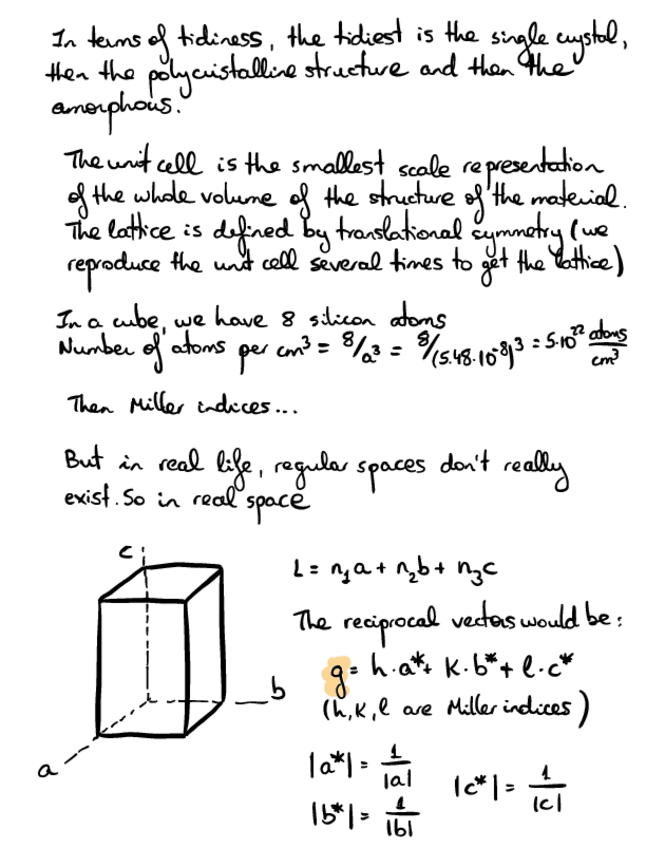 In terms of tidiness, the tidiest is the single crystal,
then the polycristalline structure and then the
amorphous.
The unit cell is the smallest scale representation
of the whole volume of the structure of the material.
The lattice is defined by translational symmetry (we
reproduce the unit cell several times to get the lattice)
In a cube, we have 8 silicon atoms
Number of atoms per cm³ = 8/a³ = 8/(5.48·10⁻⁸)³ = 5·10²² atoms/cm³
Then Miller indices...
But in real life, regular spaces don't really
exist. So in real space
c
b
a
L = n₁a + n₂b + n₃c
The reciprocal vectors would be:
g = h·a* + k·b* + l·c*
(h, k, l are Miller indices)
|a*| = 1/|a|
|c*| = 1/|c|
|b*| = 1/|b|